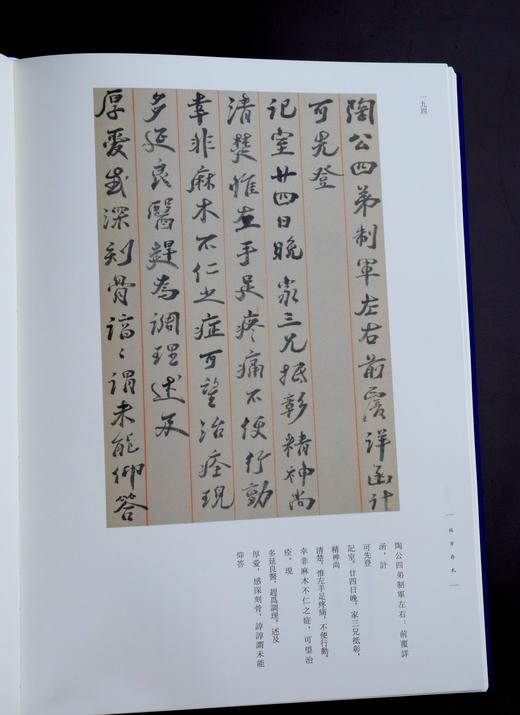 一九四
陶公四弟制軍左右前覆詳函計
可先登
記室廿四日晚家三兄抵彰精神尚
清楚惟左手足疼痛不便行動
幸非麻木不仁之症可望治痊現
多延良醫趕為調理述及
厚愛感深刻骨諄諄謂未能仰答
陶公四弟制軍左右：前覆詳
函，計
可先登
記室。廿四日晚，家三兄抵彰，
精神尚
清楚，惟左手足疼痛，不便行動，
幸非麻木不仁之症，可望治
痊，現
多延良醫，趕爲調理。述及
厚愛，感深刻骨，諄諄謂未能
仰答